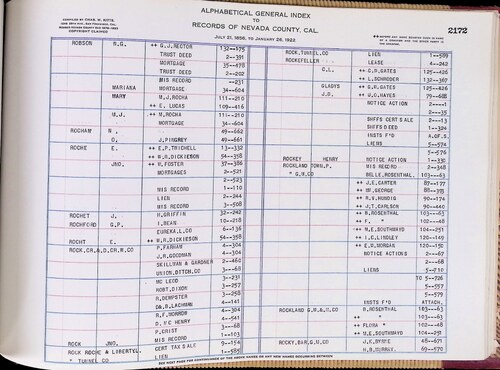 COMPILED BY CHAS. W. GITTS,
COPYRIGHT CLAIMED
ALPHABETICAL GENERAL INDEX
TO
RECORDS OF NEVADA COUNTY, CAL.
JULY 21, 1856, TO JANUARY 26, 1922
2172
ROBSON B.G. ++ G.J.RECTOR 132--475
TRUST DEED 2--391
MORTGAGE 35--478
TRUST DEED 2--202
MIS RECORD --231
MARIANA MORTGAGE 34--604
MARY M.J.ROCHA 111--210
++ E. LUCAS 109--416
M.J. ++ M.ROCHA 111--210
MORTGAGE 34--604
ROCHAM 49--662
O. J.PINGREY 49--661
ROCHE E. ++ E.P.TRICHELL 13--332
++ W.R.DICKIESON 54--358
JNO. ++ W.FOSTER 37--368
MORTGAGES 2--521
2--523
MIS RECORD 1--110
LIEN 2--244
MIS RECORD 3--508
ROCHET J. H.GRIFFIN 32--242
ROCHFORD G.P. I.BEAN 10--218
EUREKA.L.CO 6--136
ROCHT E. ++ W.R.DICKIESON 54--358
ROCK.CR.&.D.CR.W.CO P.FARHAM 4--304
J.R.GOODMAN 4--304
SKILLMAN & GARDNER 2--460
UNION.DITCH.CO 3--68
MC LEOD 3--231
ROBT.DIXON 3--257
R.DEMPSTER 3--258
D&B.LACHMAN 4--141
H.F.MORROW 4--304
D. MC HENRY 4--541
P.CRIST 3--68
MIS RECORD 1--103
ROCK JNO. CERT TAX SALE 9--154
ROCK ROCHE & LIBERTYL. LIEN 1--585
" TUNNEL CO
ROCK.TUNNEL.CO LIEN 1--589
ROCKEFELLER LEASE 4--242
C.L. ++ G.R.GATES 125--426
++ L.SCHRODER 132--307
GLADYS ++ G.R.GATES 125--426
J.D. ++ J.O.HAYES 79--688
NOTICE ACTION 2---1
2--35
SHFFS CERT SALE 2--13
SHFFS DEED 1--324
INSTS F'D A.OF.S.
LIENS 5--574
5--576
ROCKEY HENRY NOTICE ACTION 1--330
ROCKLAND TOWN.P. MIS RECORD 2--348
" G.M.CO BELLE.ROSENTHAL. 103---63
++ J.E.CARTER 87--177
++ W.GEORGE 88--373
++ R.V.HUNDIG 90--174
++ J.T.CARLSON 90--440
++ B.ROSENTHAL 103---63
++ F. " 102---48
++ M.E.SOUTHWARD 104--251
++ I.E.LINDLEY 120--149
++ E.B.MORGAN 120--150
NOTICE ACTIONS 2---67
2---68
LIENS 5--610
TO 5--726
5--557
5--579
INSTS F'D ATTACH.
ROCKLAND G.M.&.M.CO B.ROSENTHAL 103---63
++ " 103---63
++ FLORA " 102---48
++ M.E.SOUTHWARD 104--251
ROCKY.BAR.Q.M.CO J.H.BYRNE 48--671
H.H.MURRAY 49--570
SEE NEXT PAGE FOR CONTINUANCE OF THE ABOVE NAMES OR ANY NEW NAMES OCCURRING BETWEEN